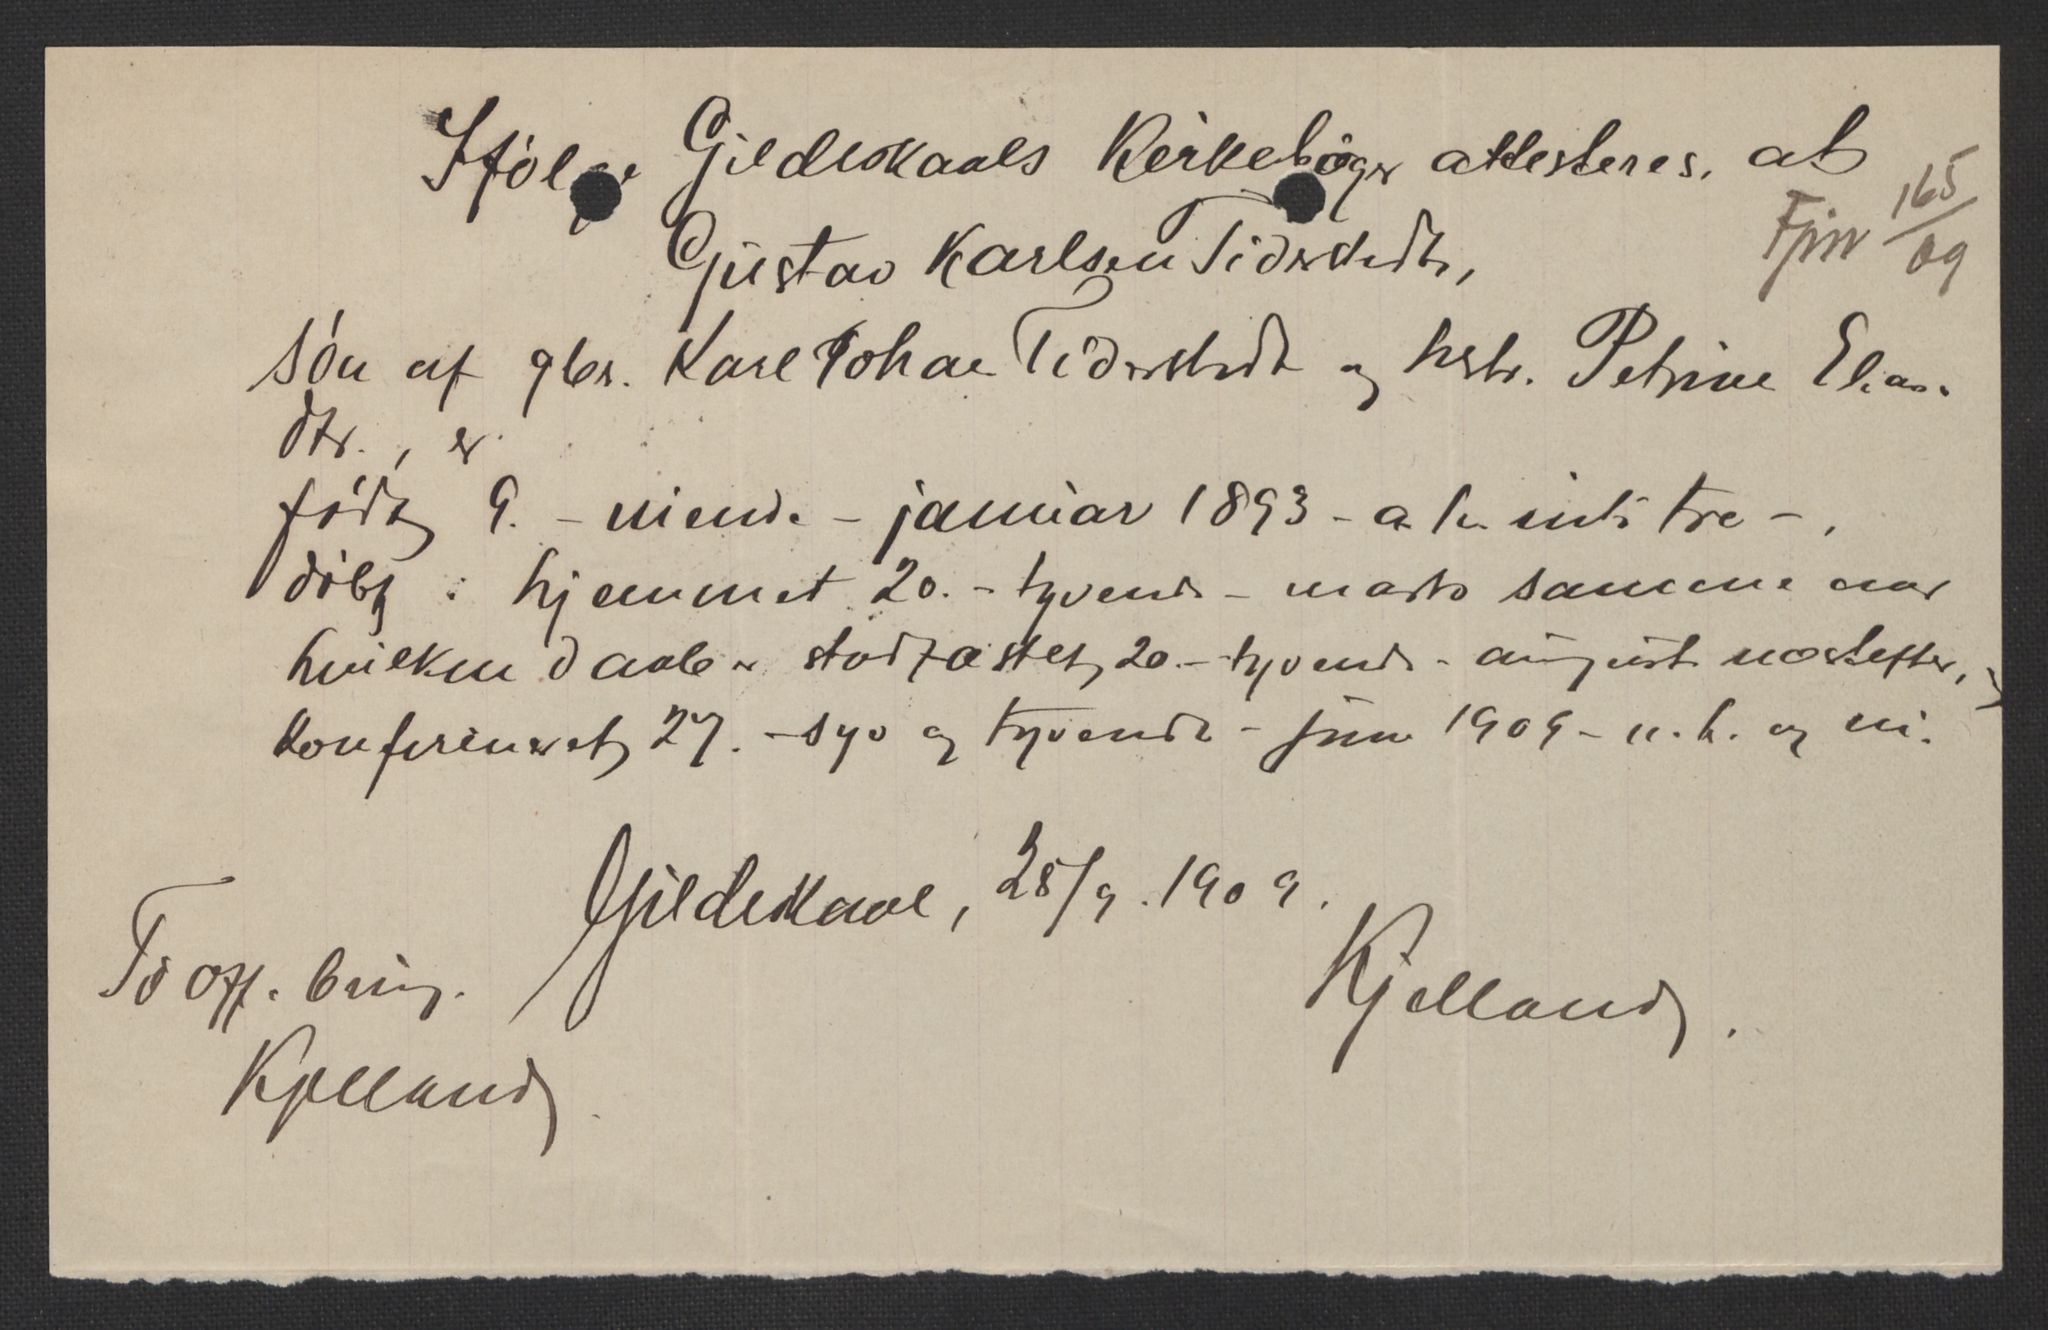 Ifølge Gildeskaals Kirkebøger attesteres, at
Gustav Karlsen Tiderstedt,
Fjnr 165/09
søn af gbr. Karl Johan Tiderstedt og hstr. Petrine Elias-
dtr., er
født 9. - niende - januar 1893 - a. h. nitti tre -,
døbt i hjemmet 20. - tyvende - marts samme aar
hvilken daab er stadfæstet 20. - tyvende - august næstefter,
konfirmeret 27. - syv og tyvende - juni 1909 - n. h. og ni.
Gildeskaal, 28/9. 1909.
Kjelland.
To off. brug.
Kjelland